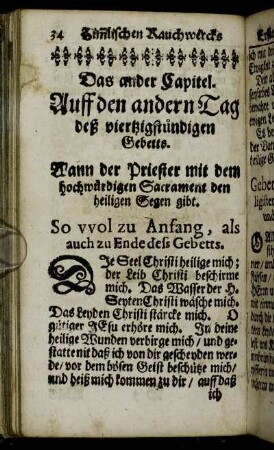 34 Himlischen Rauchwercks
Das ander Capitel.
Auff den andern Tag
deß viertzigstündigen
Gebetts.
Wann der Priester mit dem
hochwürdigen Sacrament den
heiligen Segen gibt.
So vvol zu Anfang, als
auch zu Ende deß Gebetts.
DIe Seel Christi heilige mich;
der Leib Christi beschirme
mich. Das Wasser der H.
Seyten Christi wäsche mich.
Das Leyden Christi stärcke mich. O
gütiger JEsu erhöre mich. In deine
heilige Wunden verbirge mich/ und ge-
statte nit daß ich von dir gescheyden wer-
de/ vor dem bösen Geist beschütze mich/
und heiß mich kommen zu dir/ auff daß
ich